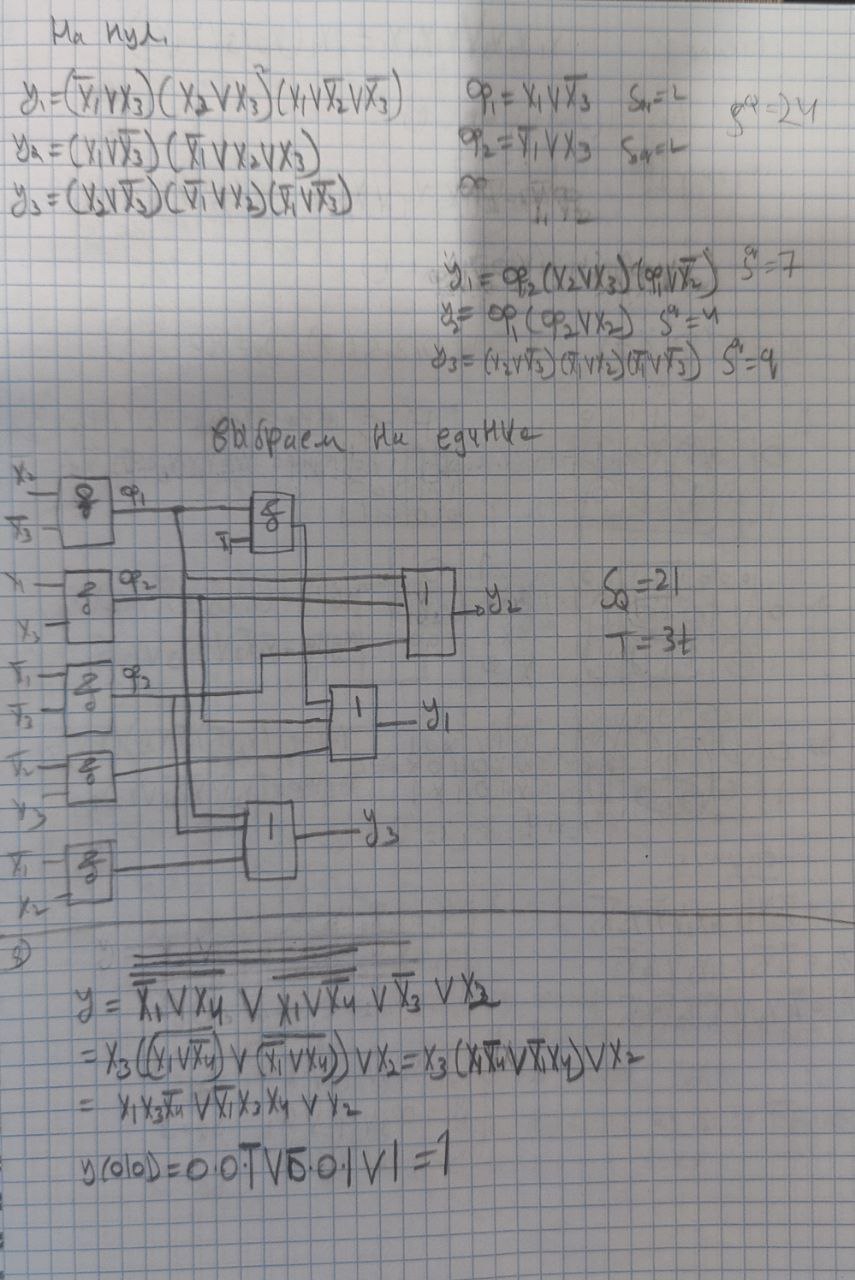 На нул.
y₁=(x̅₁∨x₃)(x₂∨x₃)(x₁∨x̅₂∨x̅₃)
y₂=(x₁∨x̅₃)(x̅₁∨x₂∨x₃)
y₃=(x₂∨x̅₃)(x̅₁∨x₂)(x̅₁∨x̅₃)
φ₁=x₁∨x̅₃ Sq=2
φ₂=x̅₁∨x₃ Sq=2
S^q=24
y₁=φ₂(x₂∨x₃)(φ₁∨x̅₂) S^q=7
y₂=φ₁(φ₂∨x₂) S^q=4
y₃=(x₂∨x̅₃)(x̅₁∨x₂)(x̅₁∨x̅₃) S^q=9
выбраем на единице
x₂
x̅₃
& φ₁
&
x₁
x₃
& φ₂
1 y₂
S_Q=21
T=3t
x̅₁
x̅₃
& φ₃
1 y₁
x̅₂
x₃
&
1 y₃
x̅₁
x₂
&
y = x̅₁∨x₄ ∨ x₁∨x̅₄ ∨ x̅₃ ∨ x₂
=x₃((x₁∨x̅₄)∨(x̅₁∨x₄))∨x₂=x₃(x₁x̅₄∨x̅₁x₄)∨x₂
= x₁x₃x̅₄∨x̅₁x₃x₄∨x₂
y(0100)=0·0·1̅∨0̅·0·1∨1=1